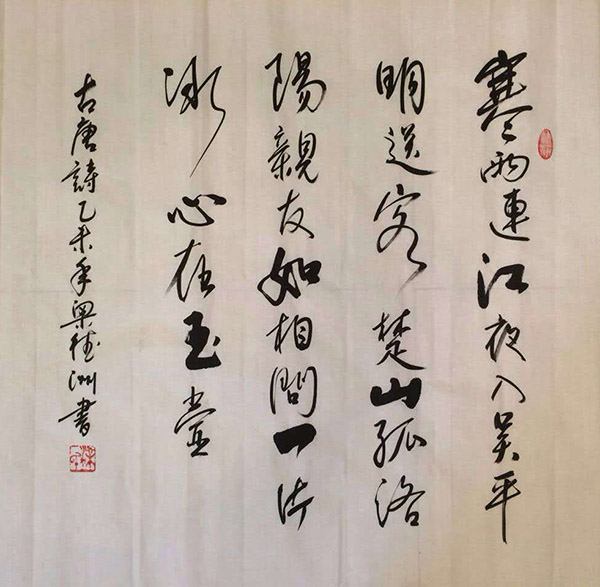 寒雨連江夜入吴平
明送客楚山孤洛
陽親友如相問一片
冰心在玉壺
古唐詩乙未年梁德洲書